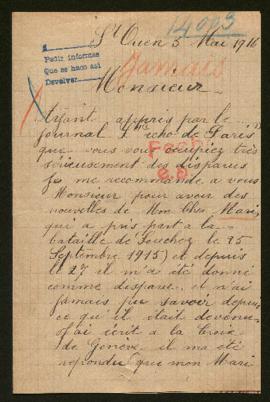 14093
St Ouen 5 Mai 1916
Pedir informes
Que se hace así
Devolver
Jamais
Monsieur
Ayant appris par le
journal L'echo de Paris
que vous vous occupiez très
sérieusement des disparus
je me recommande a vous
Monsieur pour avoir des
nouvelles de Mon Cher Mari
qui a pris part a la
bataille de Souchez le 25
Septembre 1915) et depuis
le 27 il m'a été donné
comme disparu et n'ai
jamais pu savoir depuis
ce qu'il était devenu
J'ai écrit a la Croix
de Genève il ma été
repondu que mon Mari